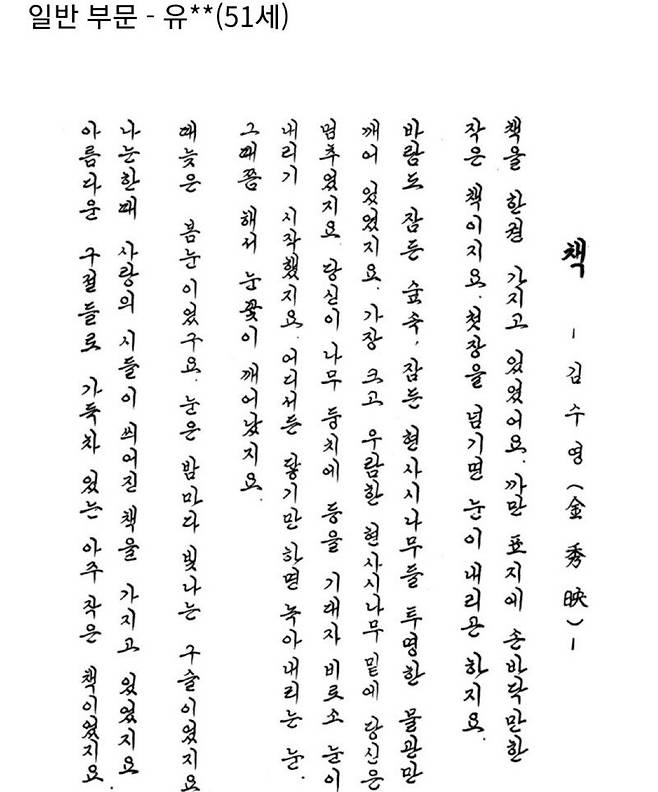 일반 부문 - 유**(51세)
책
- 김수영(金秀映) -
책을 한권 가지고 있었어요. 까만 표지에 손바닥만한
작은 책이지요. 첫장을 넘기면 눈이 내리곤 하지요.
바람도 잠든 숲속, 잠든 현사시나무들 투명한 물관만
깨어 있었지요. 가장 크고 우람한 현사시나무 밑에 당신은
멈추었지요. 당신이 나무 둥치에 등을 기대자 비로소 눈이
내리기 시작했지요. 어디서든 닿기만 하면 녹아내리는 눈.
그때쯤 해서 눈꽃이 깨어났지요.
때늦은 봄눈이었구요. 눈은 밤마다 빛나는 구슬이었지요
나는한때 사랑의 시들이 씌어진 책을 가지고 있었지요
아름다운 구절들로 가득차 있는 아주 작은 책이었지요.